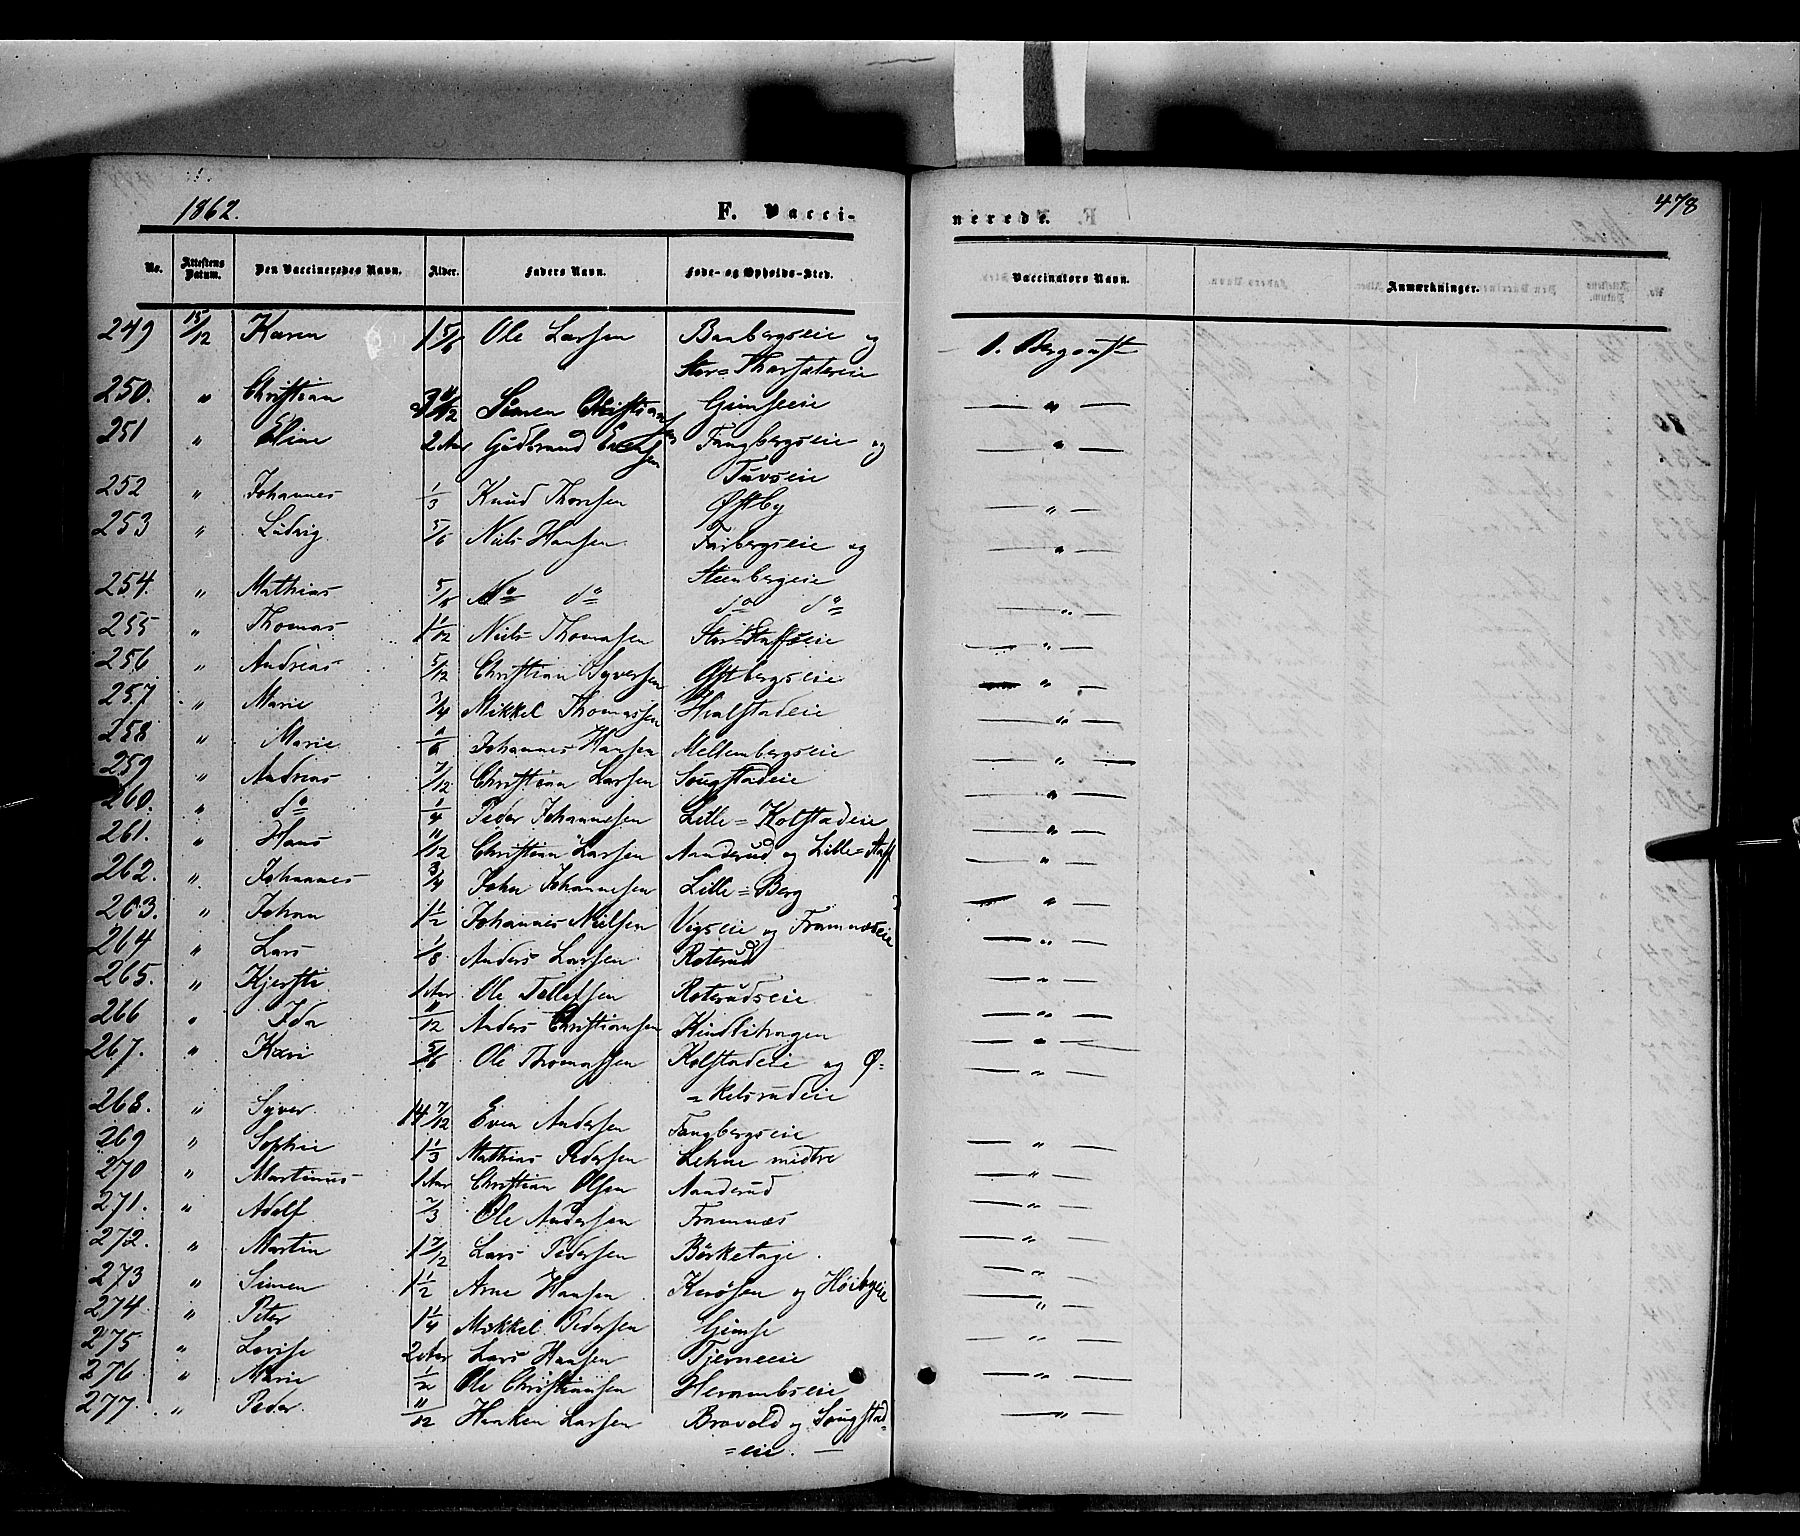 1862. F. Vacci- nerede. 478
No. Attestens Datum. Den Vaccineredes Navn. Alder. Faders Navn. Føde- og Opholds-Sted. Vaccinators Navn. Anmærkninger.
249 15/12 Karen 1 5/6 Ole Larsen Banbergseie og
Stor= Thorsætereie
250. " Christian 3 11/12 Simen Christiansen Gimseeie — " —
251 " Eline 2 Aar Gudbrand Evensen Fangbergseie og — " —
Tuvseie
252 " Johannes 1/3 Knud Thorsen Østby — " —
253 " Ludvig 5/6 Niels Hansen Farbergseie og — " —
Steenbergeie
254. " Mathias 5/6 do do do — " —
255 " Thomas 1 1/12 Niels Thomasen Stor Staffseie — " —
256 " Andreas 5/12 Christian Syversen Østbergseie — " —
257. " Marie 3/4 Mikkel Thomassen Hvalstadeie — " —
258 " Marie Johannes Hansen Mellembergseie — " —
259 " Andreas 7/12 Christian Larsen Sougstadeie — " —
260. " do 1/4 Peder Johannesen Lille= Kolstadeie — " —
261. " Hans 11/12 Christian Larsen Aanderud og Lille= Staff — " —
262. " Johannes 3/4 John Johannesen Lille= Berg — " —
263. " Johan 1 1/2 Johannes Nielsen Vigseie og Framnæseie — " —
264 " Lars 1/6 Anders Larsen Roterud — " —
265. " Kjersti 1 Aar Ole Tollefsen Roterudseie — " —
266 " Ida 11/12 Anders Christiansen Kindlihagen — " —
267. " Kari 5/6 Ole Thomassen Kolstadeie og Ø- — " —
=kelsrudeie
268. " Syver 14 7/12 Even Andersen Fangbergseie — " —
269 " Sophie 1 1/3 Mathias Pedersen Lehne midtre — " —
270 " Martinus 1 Aar Christian Olsen Aanderud — " —
271. " Adolf 2/3 Ole Andersen Framnæs — " —
272. " Martin 1 7/12 Lars Pedersen — " —
273 " Simen 1 1/2 Arne Hansen og Høibyeie — " —
274 " Peter 1 1/4 Mikkel Pedersen Gimse — " —
275 " Lovise 2 Aar Lars Hansen Tjerneeie — " —
276 " Marie 1/2 Ole Christiansen Herambseie — " —
277. " Peder 11/12 Haaken Larsen Bravold og Sougstad= — " —
=eie. —